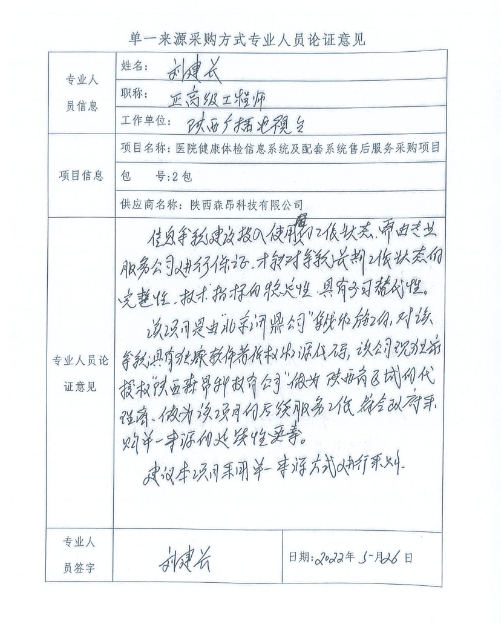 单一来源采购方式专业人员论证意见
专业人
员信息
姓名： 刘建长
职称： 正高级工程师
工作单位： 陕西广播电视台
项目信息
项目名称：医院健康体检信息系统及配套系统售后服务采购项目
包 号:2包
供应商名称：陕西森昂科技有限公司
专业人员论
证意见
信息系统建设投入使用后的工作状态，需由专业
服务公司进行保证，才能对系统长期工作状态的
完整性、技术指标的稳定性，具有不可替代性。
该项目是由"北京问鼎公司" ，对该
系统具有独家软件著作权和源代码，该公司现独家
授权"陕西森昂科技有限公司"做为陕西省区域的代
理商，做为该项目的后续服务工作，符合政府采
购单一来源的 性要素。
建议本项目采用单一来源方式进行采购。
专业人
员签字
刘建长
日期:2022年 5月26日